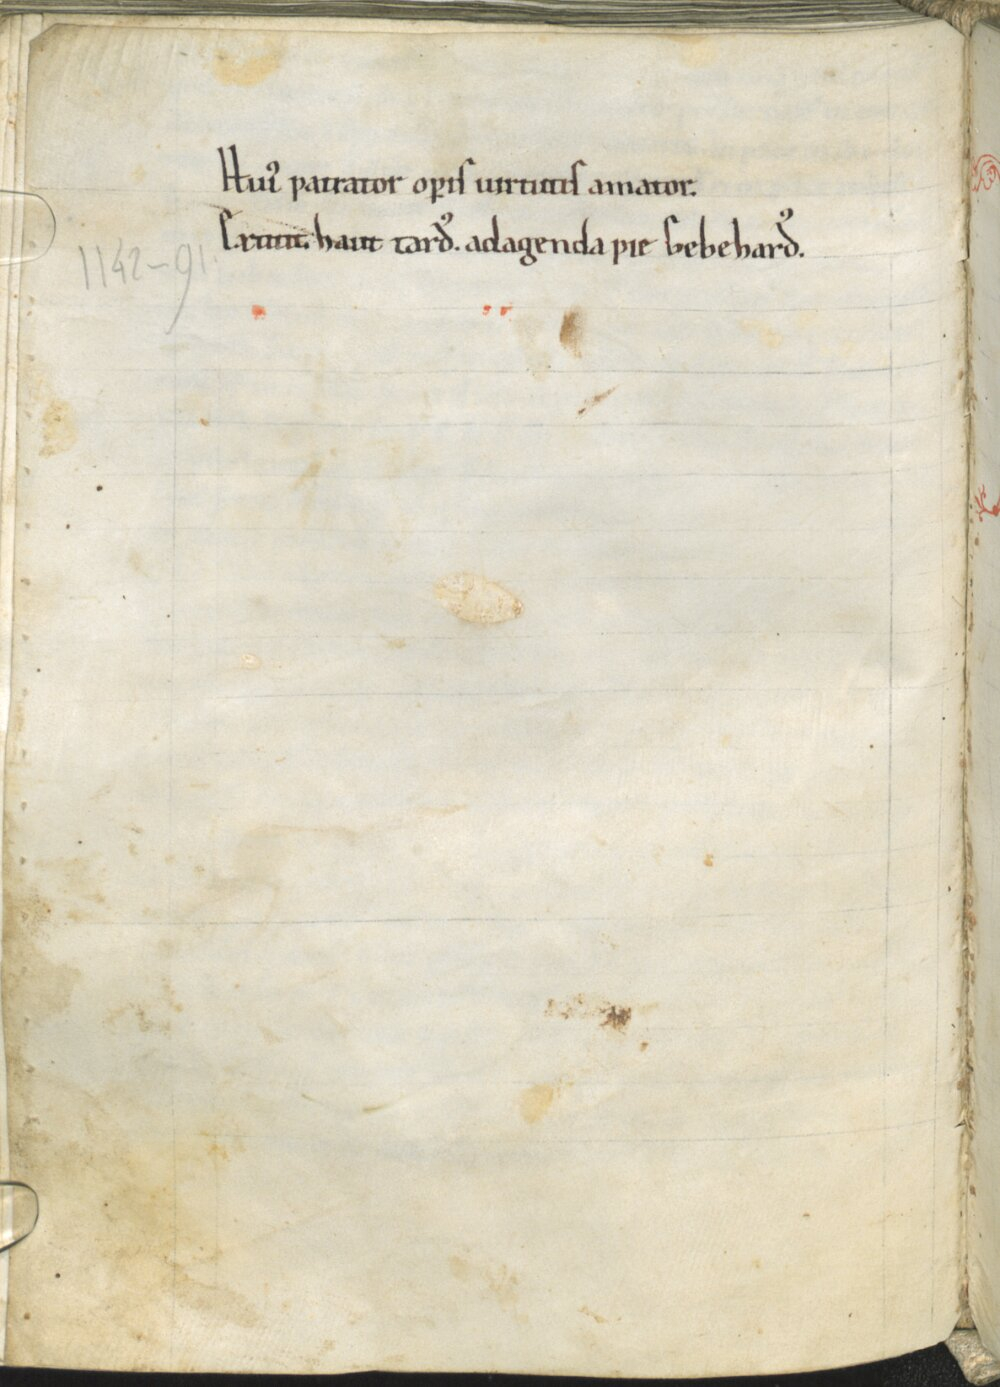 Huiꝰ patrator oꝑis uirtutis amator.
Extitit. haut tardꝰ. ad agenda pie Gebehardꝰ.
1142-91.